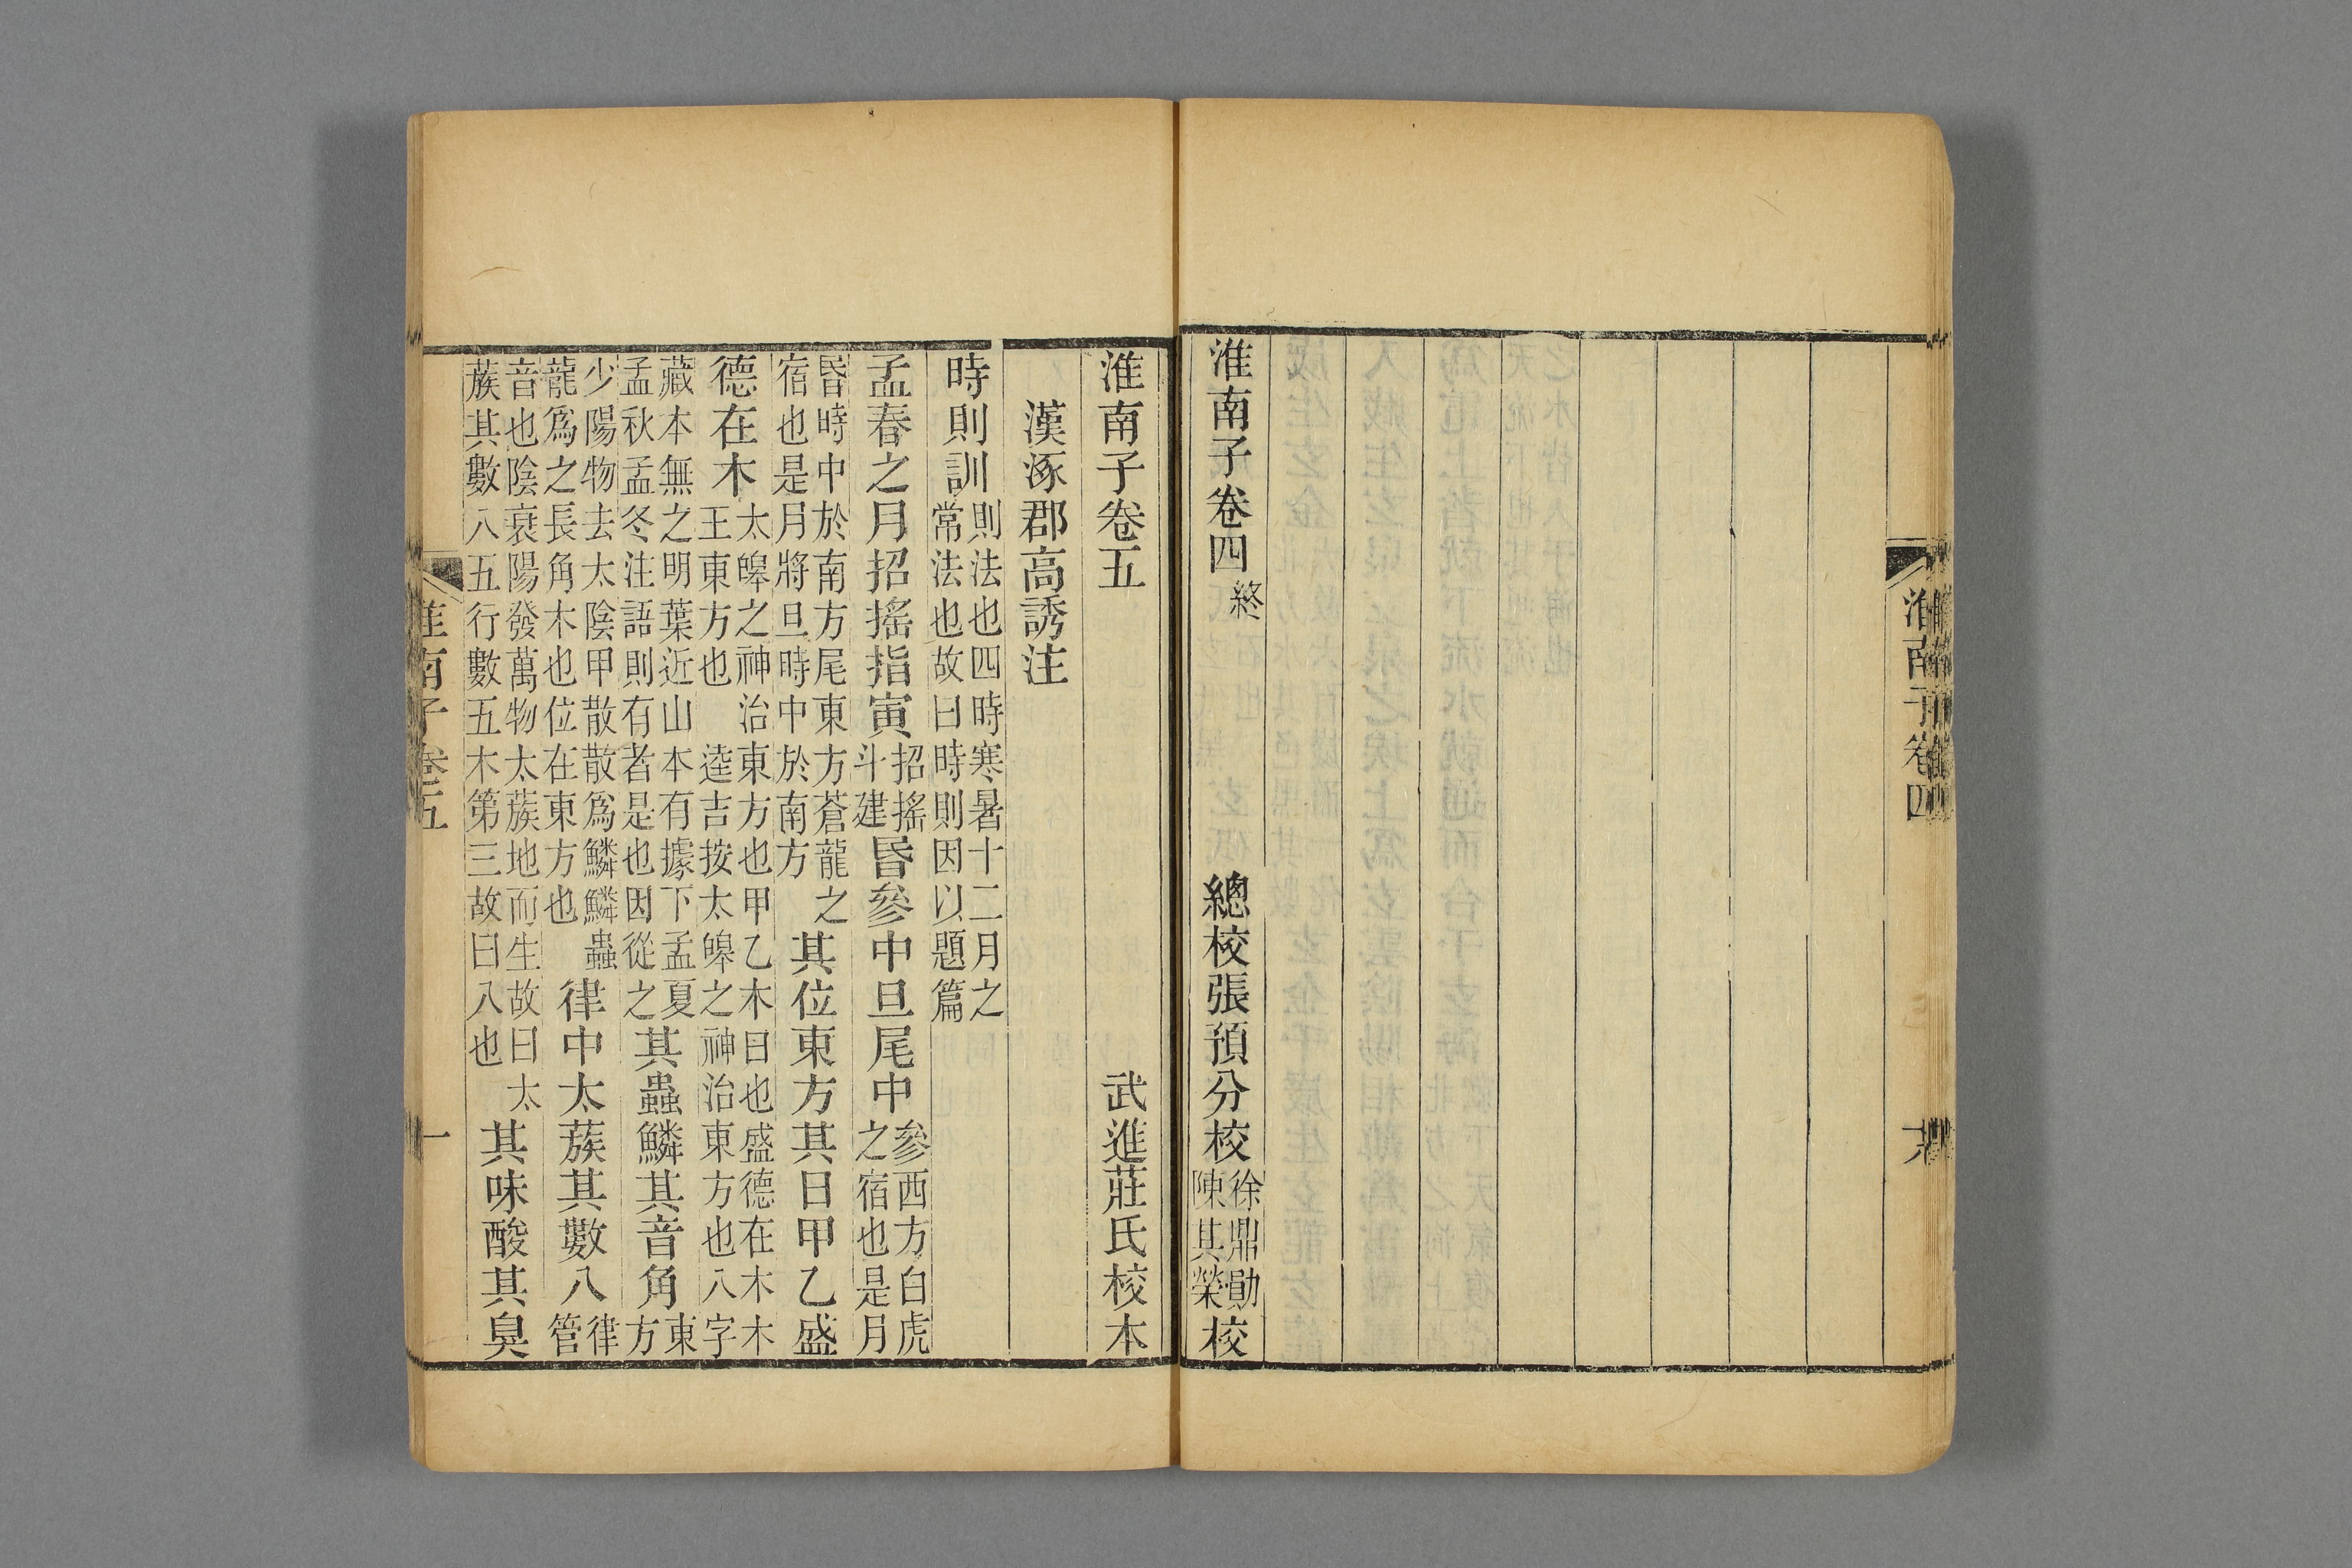 淮南子卷四
十八
淮南子卷四終
總校張預分校徐鼎勛陳其榮校
淮南子卷五
武進莊氏校本
漢涿郡高誘注
時則訓則法也四時寒暑十二月之常法也故曰時則因以題篇
孟春之月招搖指寅招搖斗建昏參中旦尾中參西方白虎之宿也是月
昏時中於南方尾東方蒼龍之宿也是月將旦時中於南方其位東方其日甲乙盛
德在木太皞之神治東方也甲乙木日也盛德在木木王東方也 逵吉按太皞之神治東方也八字
藏本無之明葉近山本有據下孟夏孟秋孟冬注語則有者是也因從之其蟲鱗其音角東方
少陽物去太陰甲散散爲鱗鱗蟲龍爲之長角木也位在東方也律中太蔟其數八律管
音也陰衰陽發萬物太蔟地而生故曰太蔟其數八五行數五木第三故曰八也其味酸其臭
淮南子卷五
一